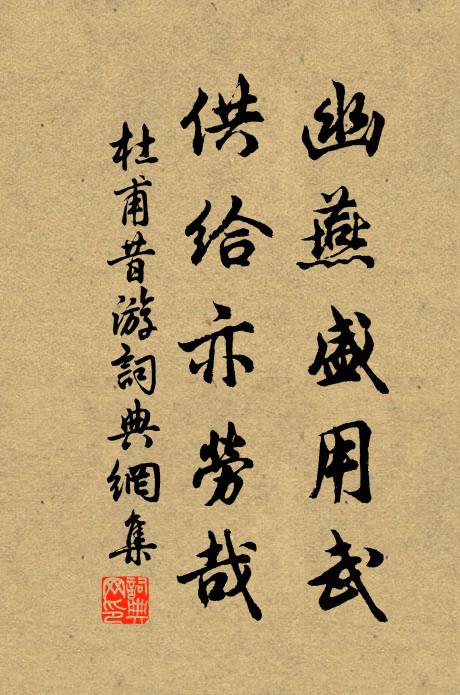 幽燕盛用武
供給亦勞哉
杜甫昔游詞典網集
詞典网印